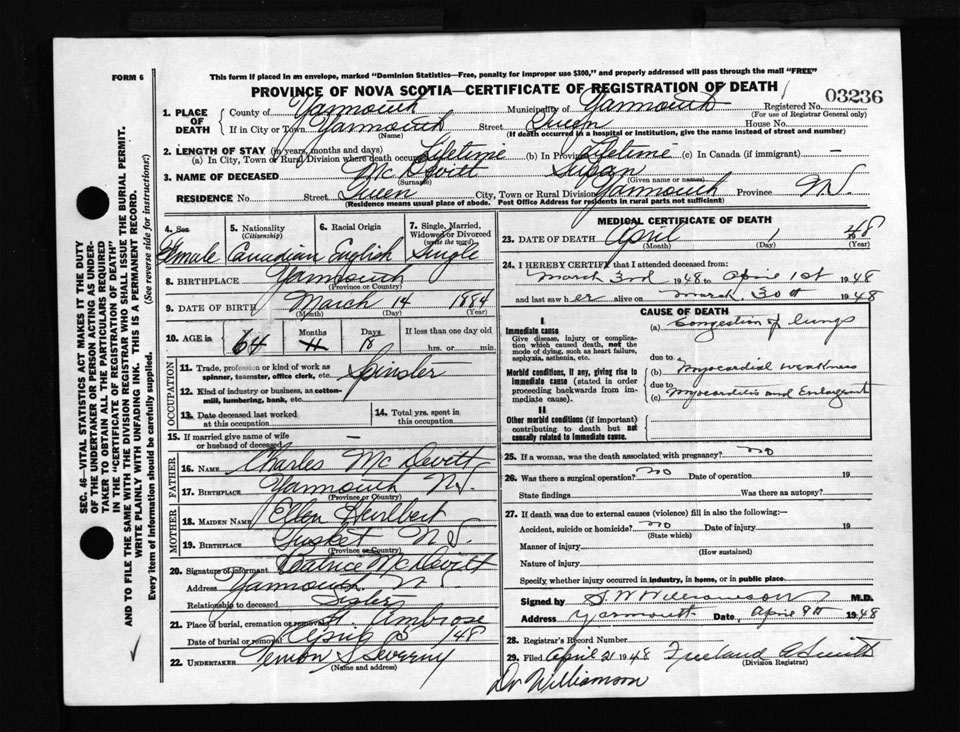 FORM 6
This form if placed in an envelope, marked "Dominion Statistics—Free, penalty for improper use $300," and properly addressed will pass through the mail "FREE"
PROVINCE OF NOVA SCOTIA—CERTIFICATE OF REGISTRATION OF DEATH
03236
1. PLACE OF DEATH
County of Yarmouth Municipality of Yarmouth Registered No.
(For use of Registrar General only)
If in City or Town Yarmouth Street Queen House No.
(Name) (If death occurred in a hospital or institution, give the name instead of street and number)
2. LENGTH OF STAY (in years, months and days)
(a) In City, Town or Rural Division where death occurred Lifetime (b) In Province Lifetime (c) In Canada (if immigrant) —
3. NAME OF DECEASED McDevitt Susan
(Surname) (Given name or names)
RESIDENCE No. Street Queen City, Town or Rural Division Yarmouth Province N.S.
(Residence means usual place of abode. Post Office Address for residents in rural parts not sufficient)
4. Sex Female
5. Nationality (Citizenship) Canadian
6. Racial Origin English
7. Single, Married, Widowed or Divorced (write the word) Single
8. BIRTHPLACE Yarmouth
(Province or Country)
9. DATE OF BIRTH March 14 1884
(Month) (Day) (Year)
10. AGE in 64 Months Days 18 If less than one day old
hrs. or min.
OCCUPATION
11. Trade, profession or kind of work as spinner, teamster, office clerk, etc. Spinster
12. Kind of industry or business, as cotton-mill, lumbering, bank, etc.
13. Date deceased last worked at this occupation
14. Total yrs. spent in this occupation
15. If married give name of wife or husband of deceased —
FATHER
16. NAME Charles McDevitt
17. BIRTHPLACE Yarmouth N.S.
(Province or Country)
MOTHER
18. MAIDEN NAME Ellen Hurlbert
19. BIRTHPLACE Tusket N.S.
(Province or Country)
20. Signature of informant Beatrice McDevitt
Address Yarmouth N.S.
Relationship to deceased Sister
21. Place of burial, cremation or removal St. Ambrose
Date of burial or removal April 3 /48
22. UNDERTAKER S Sweeny
(Name and address)
MEDICAL CERTIFICATE OF DEATH
23. DATE OF DEATH April 1 48
(Month) (Day) (Year)
24. I HEREBY CERTIFY that I attended deceased from:
March 3rd 1948 to April 1st 1948
and last saw her alive on March 30th 1948
CAUSE OF DEATH
I
Immediate cause
Give disease, injury or complication which caused death, not the mode of dying, such as heart failure, asphyxia, asthenia, etc.
(a) Congestion of lungs
due to
Morbid conditions, if any, giving rise to immediate cause (stated in order proceeding backwards from immediate cause).
(b) Myocardial weakness
due to
(c) Myocarditis and Enlargement
II
Other morbid conditions (if important) contributing to death but not causally related to immediate cause.
25. If a woman, was the death associated with pregnancy? no
26. Was there a surgical operation? no Date of operation 19
State findings Was there an autopsy?
27. If death was due to external causes (violence) fill in also the following:—
Accident, suicide or homicide? no Date of injury 19
(State which)
Manner of injury
(How sustained)
Nature of injury
Specify, whether injury occurred in industry, in home, or in public place.
Signed by Williamson M.D.
Address Yarmouth Date, April 9th 1948
28. Registrar's Record Number
29. Filed April 21 1948 Freeland Smith
(Division Registrar)
Dr Williamson
SEC. 46—VITAL STATISTICS ACT MAKES IT THE DUTY
OF THE UNDERTAKER OR PERSON ACTING AS UNDER-
TAKER TO OBTAIN ALL THE PARTICULARS REQUIRED
IN THE "CERTIFICATE OF REGISTRATION OF DEATH"
AND TO FILE THE SAME WITH THE DIVISION REGISTRAR WHO SHALL ISSUE THE BURIAL PERMIT.
WRITE PLAINLY WITH UNFADING INK. THIS IS A PERMANENT RECORD.
Every item of information should be carefully supplied. (See reverse side for instructions.)